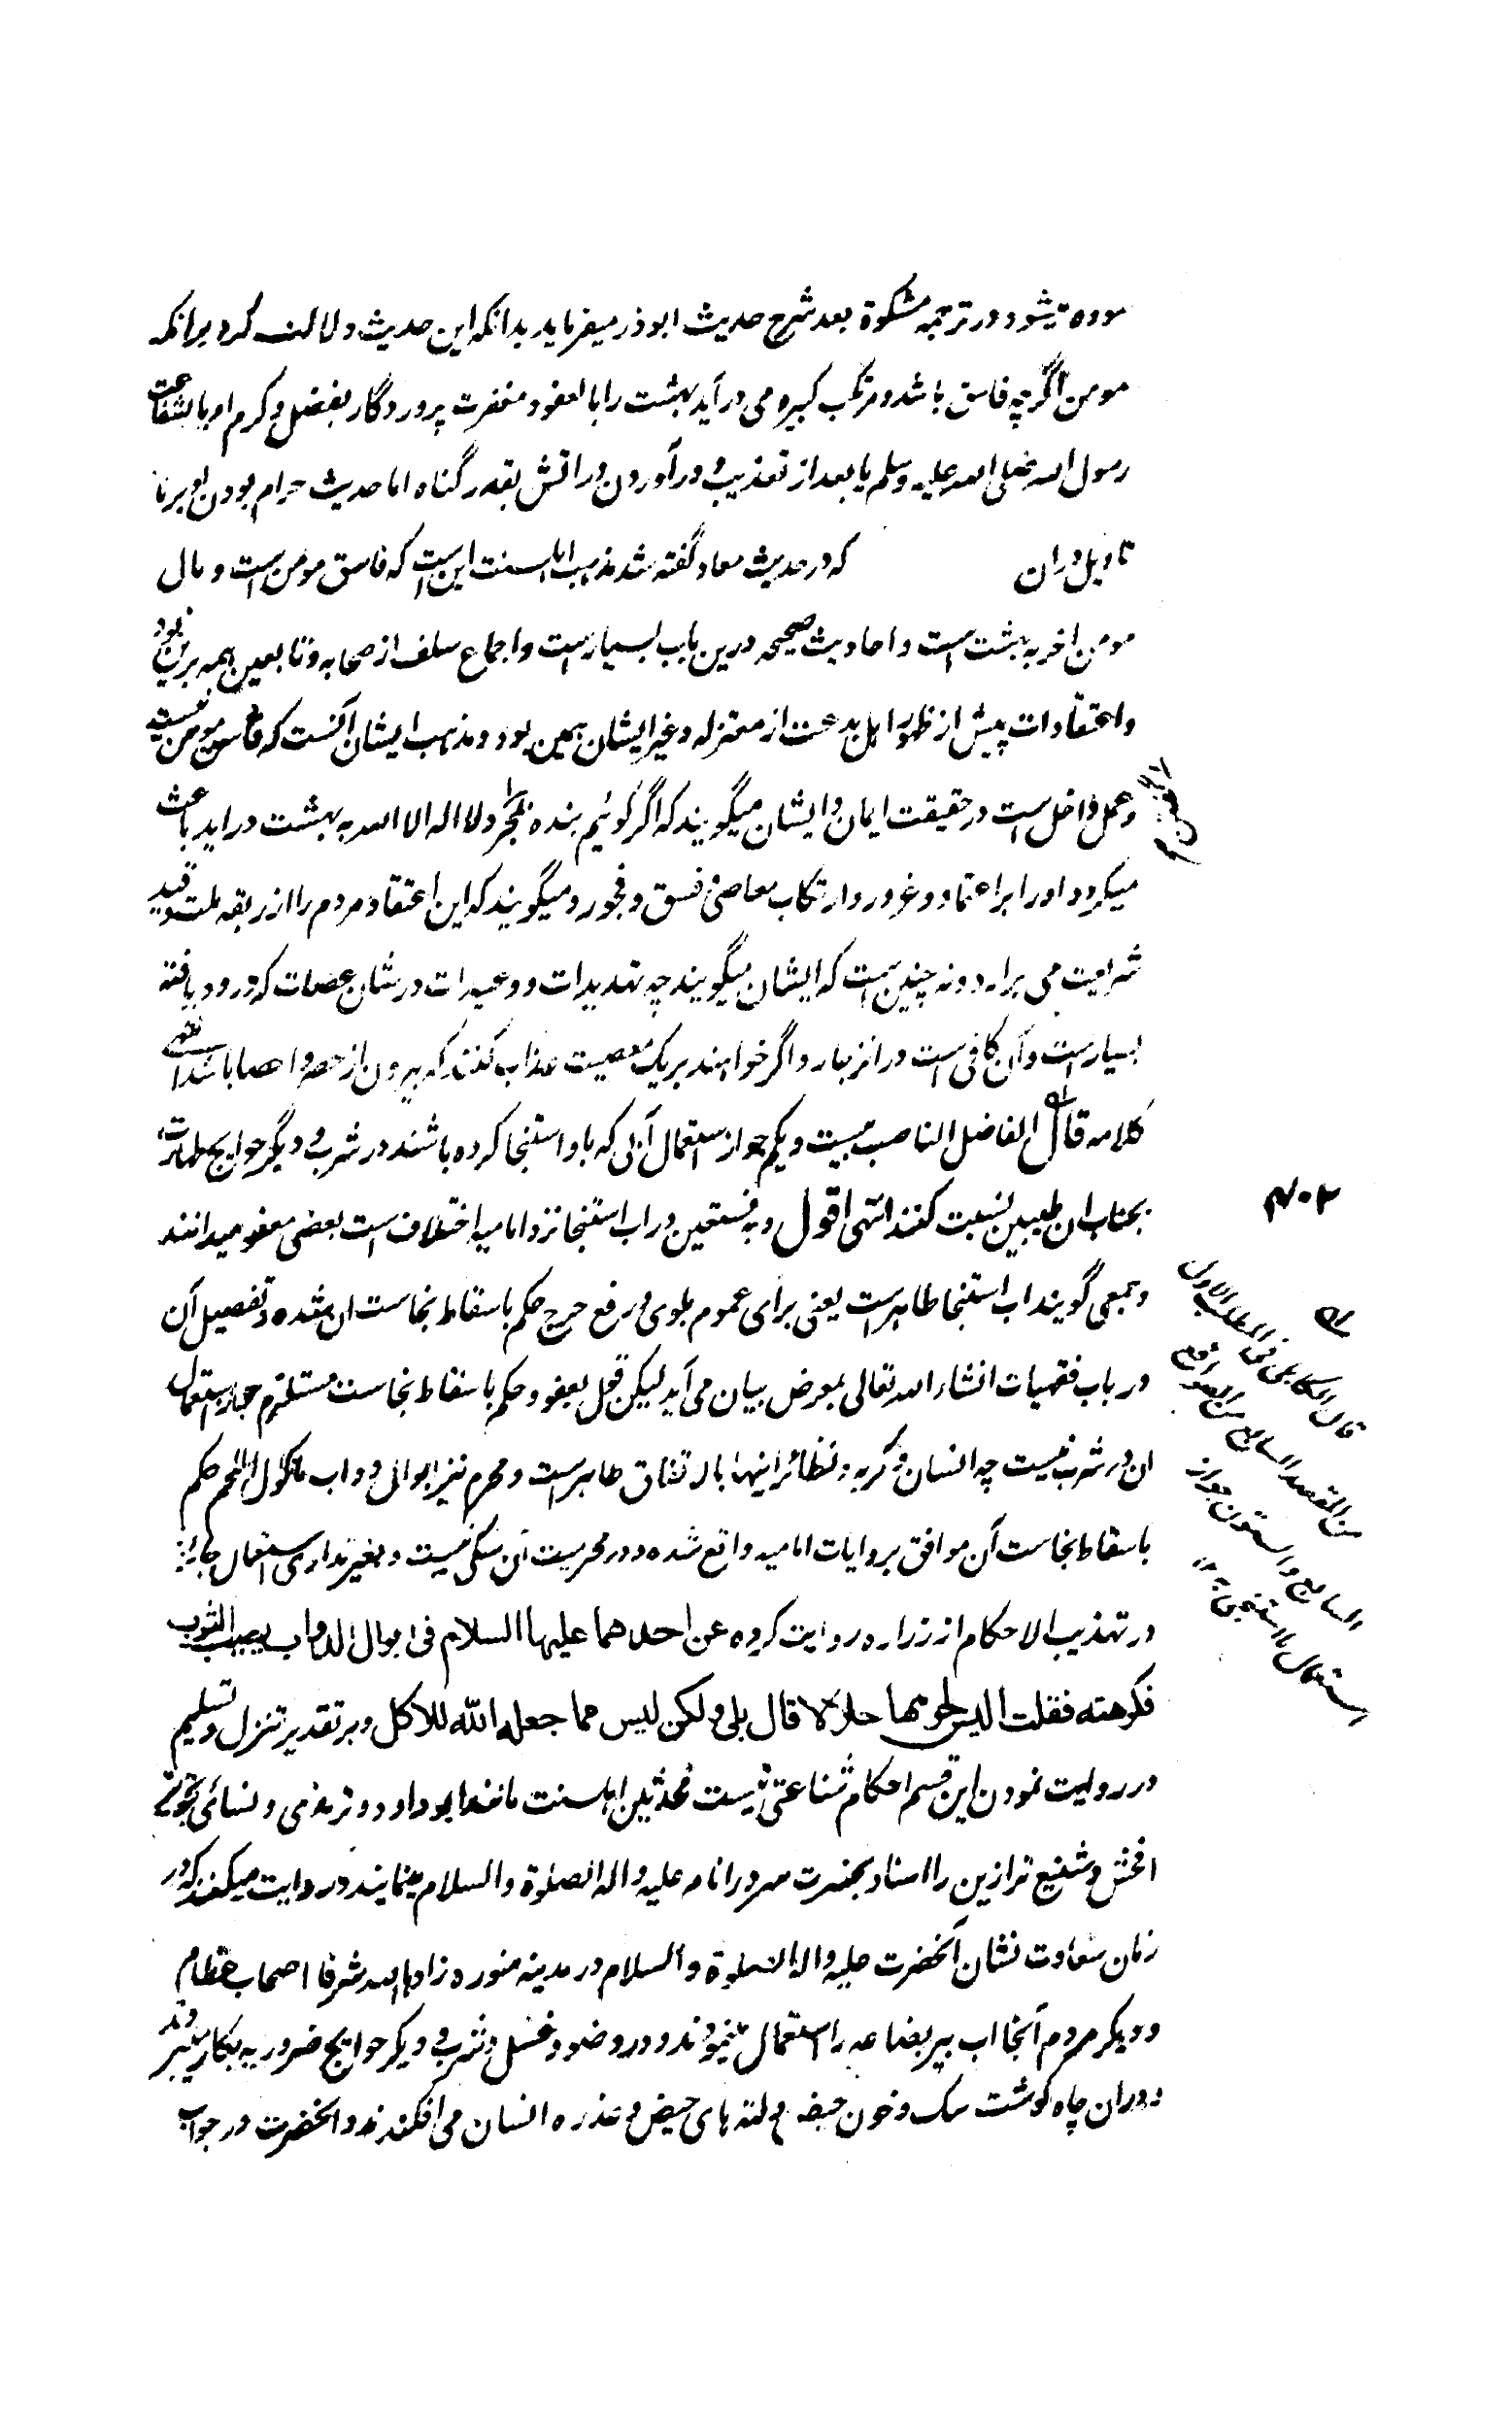 میشود در ترجمه مشکوة بعد شرح حدیث ابوذر میفرماید بدانکه این حدیث دلالت کرد برانکه
مومن اگرچه فاسق باشد و مرتکب کبیره می درآید بهشت را یا بعفو و مغفرت پروردگار بفضل و کرم او یا بشفاعت
رسول الله صلی الله علیه وسلم یا بعد از تعذیب و درآوردن در اتش بقدر گناه اما حدیث حرام بودن او بر نار
تاویل دران که در حدیث معاد گفته شد مذهب اهل سنت این است که فاسق مومن است و مال
مومن اخر به بهشت است و احادیث صحیحه درین باب بسیار است و اجماع سلف از صحابه و تابعین همه برین بود
و اعتقادات پیش از ظهور اهل بدعت از معتزله و غیر ایشان همین بود و مذهب ایشان آنست که فاسق مومن نیست
و عمل داخل است در حقیقت ایمان و ایشان میگویند که اگر گوئیم بنده بمجرد لا اله الا الله به بهشت دراید باعث
میگردد او را بر اعتماد و غرور و ارتکاب معاصی و فسق و فجور و میگویند که این اعتقاد مردم را از ربقه ملت و قید
شریعت می برارد و نه چنین است که ایشان میگویند چه تهدیدات و وعیدات در شان عصات که ورود یافته
بسیار است و آن کافی است در انزجار و اگر خواهند بر یک معصیت عذاب کنند که بیرون از حصر و احصا باشد انتهی
کلامه قال الفاضل الناصب بیست و یکم جواز استعمال آبی که باو استنجا کرده باشند در شرب و دیگر حوایج طهارت
بجناب ان طیبین نسبت کنند انتهی اقول و به نستعین در اب استنجا نزد امامیه اختلاف است بعضی معفو میدانند
و جمعی گویند اب استنجا طاهر است یعنی برای عموم بلوی و رفع حرج حکم باسقاط نجاست ان شده و تفصیل آن
در باب فقهیات انشاء الله تعالی بمعرض بیان می آید لیکن قول بعفو و حکم باسقاط نجاست مستلزم جواز استعمال
ان در شرب نیست چه انسان و گربه و نظائر اینها بالاتفاق طاهر است و محرم نیز ابوال دواب ماکول اللحم حکم
باسقاط نجاست آن موافق بروایات امامیه واقع شده و در محرمیت آن شکی نیست و بغیر تداوی استعمال جایز
در تهذیب الاحکام از زراره روایت کرده عن احدهما علیهما السلام فی ابوال الدواب یصیب الثوب
فکرهته فقلت الیس لحومها حلالا قال بلی و لکن لیس مما جعله الله للاکل و بر تقدیر تنزل و تسلیم
در روایت نمودن این قسم احکام شناعتی نیست محدثین اهل سنت مانند ابو داود و ترمذی و نسائی
افحش و شنیع تر ازین را اسناد بحضرت سرور انام علیه و اله الصلوة والسلام مینمایند و روایت میکنند که در
زمان سعادت نشان آنحضرت علیه و اله الصلوة و السلام در مدینه منوره زادها الله شرفا اصحاب عظام
و دیگر مردم آنجا اب بیر بضاعه را استعمال مینمودند و در وضو و غسل و شرب و دیگر حوایج ضروریه بکار میبردند
و دران چاه گوشت سگ و خون حیض و لته های حیض و عذره انسان می افکندند و آنحضرت در جواب
قال الکابلی فی المطلب الاول
من المقصد السابع
السابع والستون جواز
استعمال ماء استنجی به ۱۲